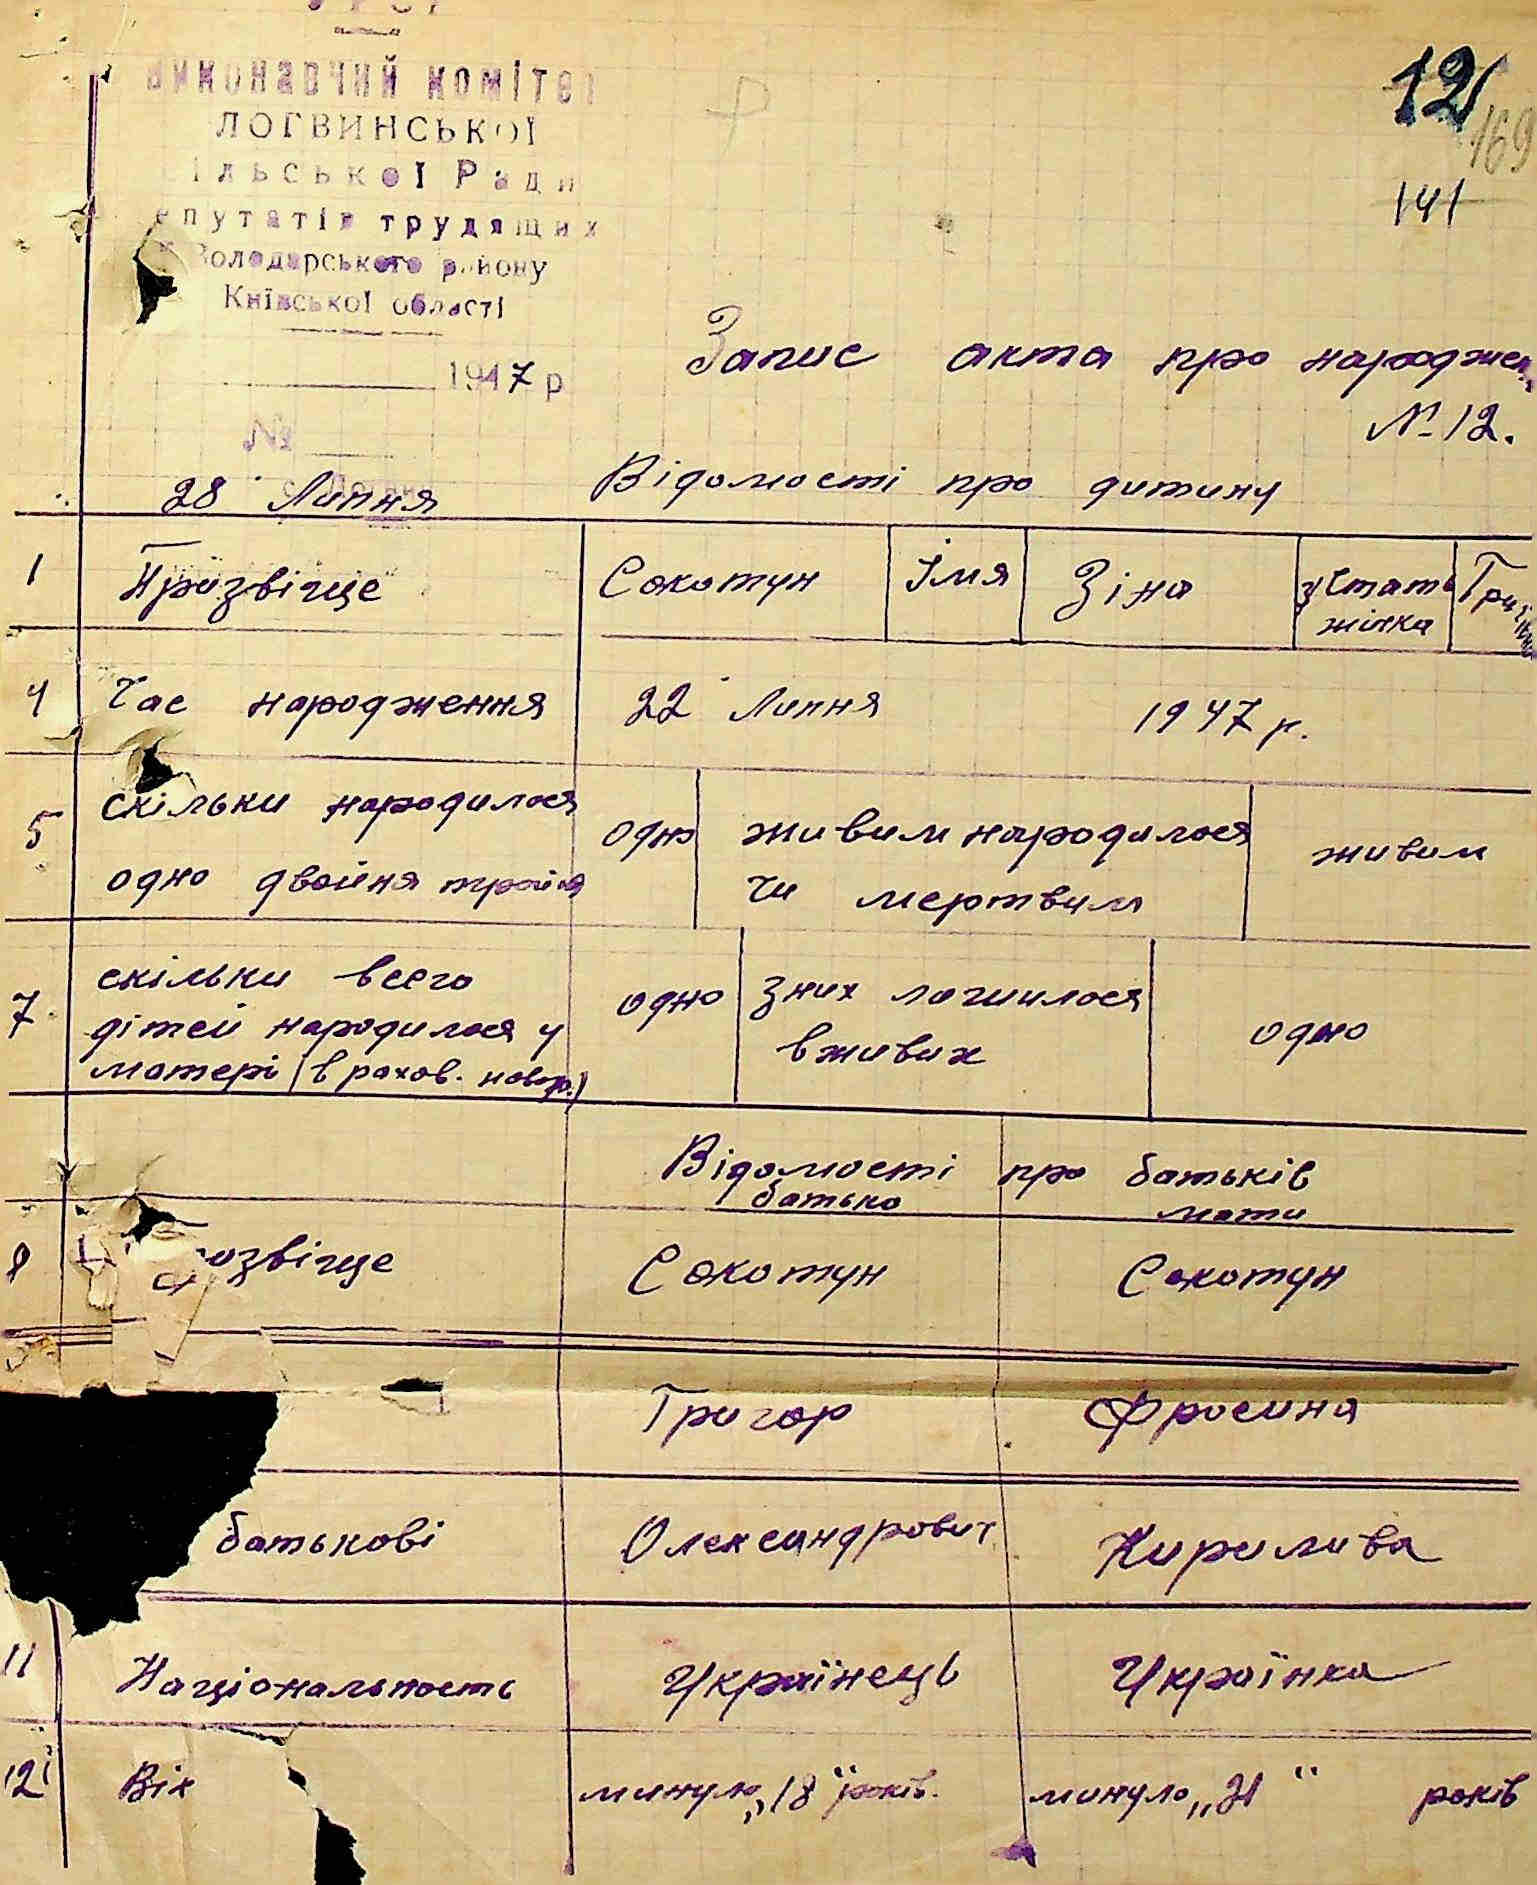 УРСР
виконавчий комітет
ЛОГВИНСЬКОЇ
ільської Ради
епутатів трудящих
Володарського району
Київської області
12
169
141
1947 р
№
Запис акта про народжен
№ 12.
28 Липня
Відомості про дитину
1 Прізвіще Сокотун Імя Зіна 3 Стать жінка
4 Час народження 22 Липня 1947 р.
5 скільки народилося одно живим народилося живим
одно двойня тройня чи мертвим
7 скільки всего одно з них лишилося одно
дітей народилося у вживих
матері (в рахов. новор.)
Відомості про батьків
батько мати
8 розвіще Сокотун Сокотун
Григор Фросина
батькові Олександрович Кирилива
11 Національность Українець Українка
12 Вік минуло „18" років. минуло „21" років